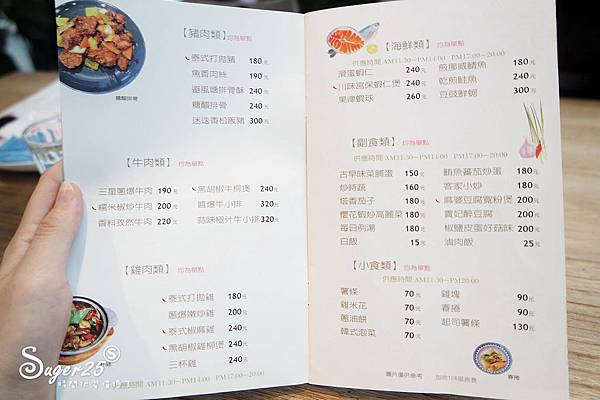 【豬肉類】 均為單點
泰式打拋豬 180元
魚香肉絲 190元
避風塘排骨酥 240元
糖醋排骨 240元
迷迭香松阪豬 300元
糖醋排骨
【牛肉類】 均為單點
三星蔥爆牛肉 190元
糯米椒炒牛肉 200元
香料孜然牛肉 220元
黑胡椒牛柳煲 240元
醬爆牛小排 320元
蒜味極汁牛小排 320元
【雞肉類】 均為單點
泰式打拋雞 180元
蔥爆嫩炒雞 200元
泰式椒麻雞 240元
黑胡椒雞柳煲 240元
三杯雞 240元
供應時間 AM11:30~PM14:00 PM17:00~20:00
【海鮮類】 均為單點
供應時間 AM11:30~PM14:00 PM17:00~20:00
滑蛋蝦仁 240元
川味宮保蝦仁煲 240元
果律蝦球 260元
煎挪威鯖魚 180元
乾煎鮭魚 240元
豆豉鮮蚵 300元
【副食類】 均為單點
供應時間 AM11:30~PM14:00 PM17:00~20:00
古早味菜脯蛋 150元
炒時蔬 160元
塔香茄子 180元
櫻花蝦炒高麗菜 180元
每日例湯 180元
白飯 15元
鮪魚蕃茄炒蛋 180元
客家小炒 180元
麻婆豆腐寬粉煲 200元
貴妃醉豆腐 200元
椒鹽皮蛋好菇味 200元
滷肉飯 25元
【小食類】 均為單點
供應時間 AM11:30~PM20:00
薯條 70元
雞米花 70元
蔥油餅 70元
韓式泡菜 70元
雞塊 90元
春捲 90元
起司薯條 130元
圖片僅供參考 加收1成服務費
春捲
Suger25